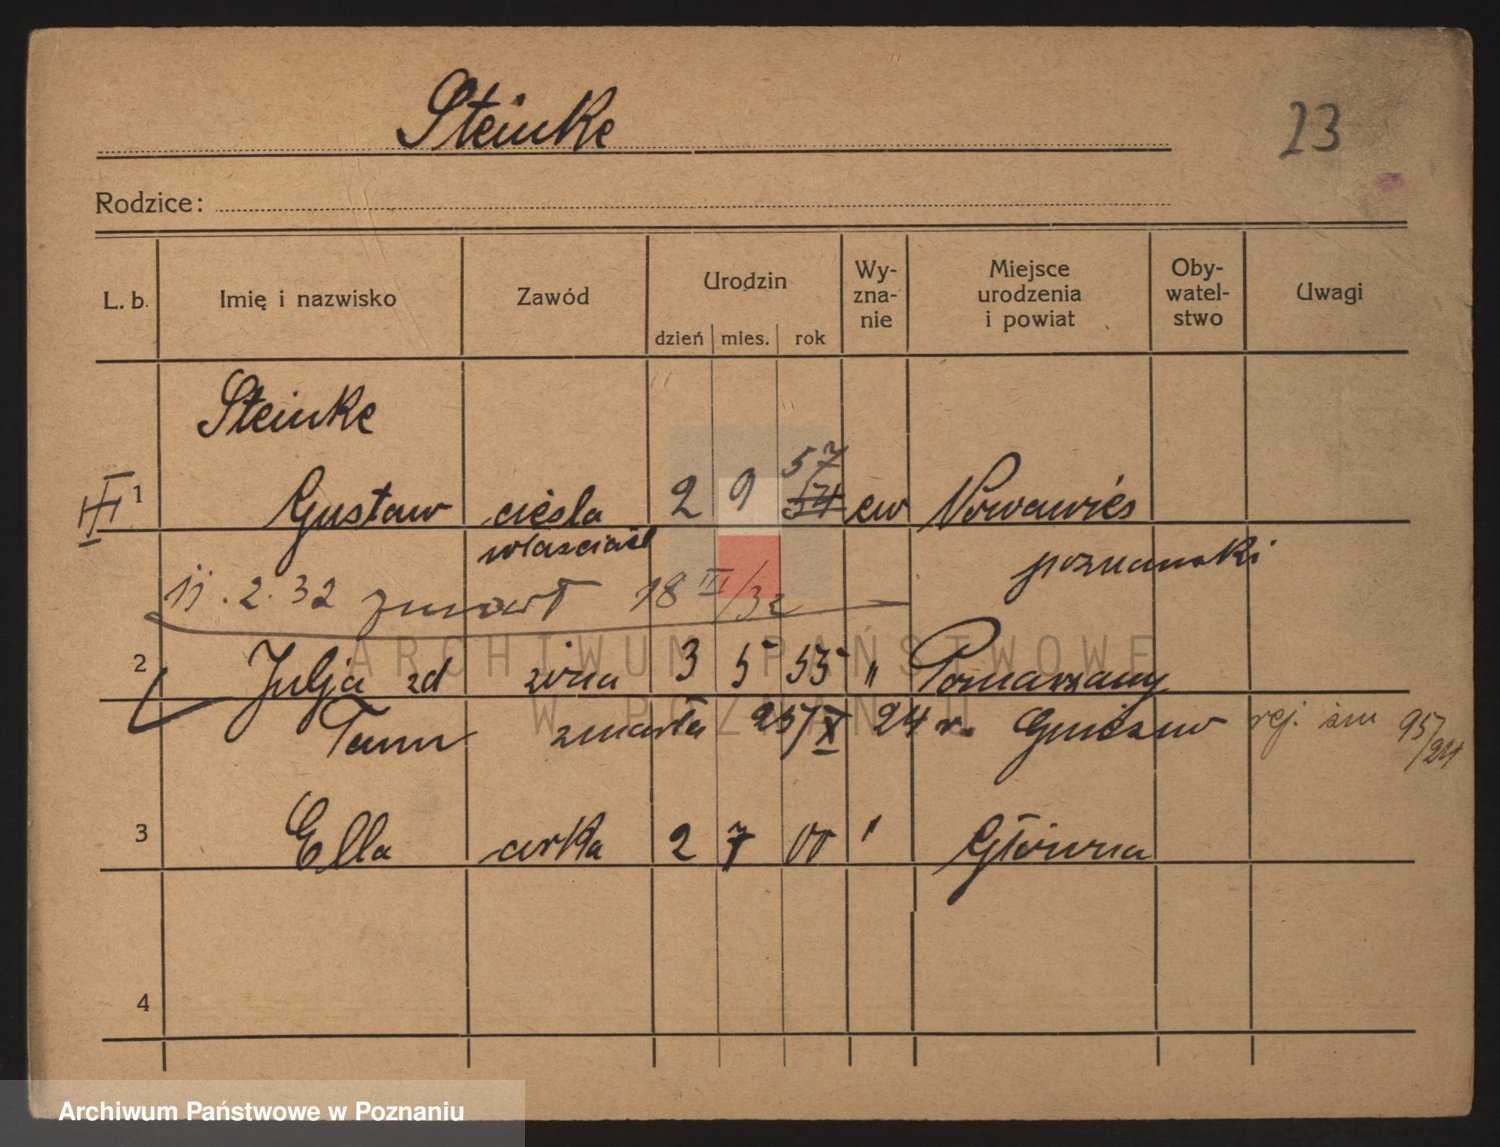 Steinke
23
Rodzice:
L. b.
Imię i nazwisko
Zawód
Urodzin
dzień mies. rok
Wy-
zna-
nie
Miejsce
urodzenia
i powiat
Oby-
watel-
stwo
Uwagi
Steinke
57
III 1 Gustaw cieśla 2 9 54 ew Nowawieś
właściciel poznański
11.2.32 zmarł 18 III/32
2 Julja zd żona 3 5 55 " Pomarzany
Tamm zmarła 25/X 24 r. Gniezno rej. zm 95/24
3 Ella córka 2 7 00 " Główna
4
ARCHIWUM PAŃSTWOWE
W POZNANIU
Archiwum Państwowe w Poznaniu